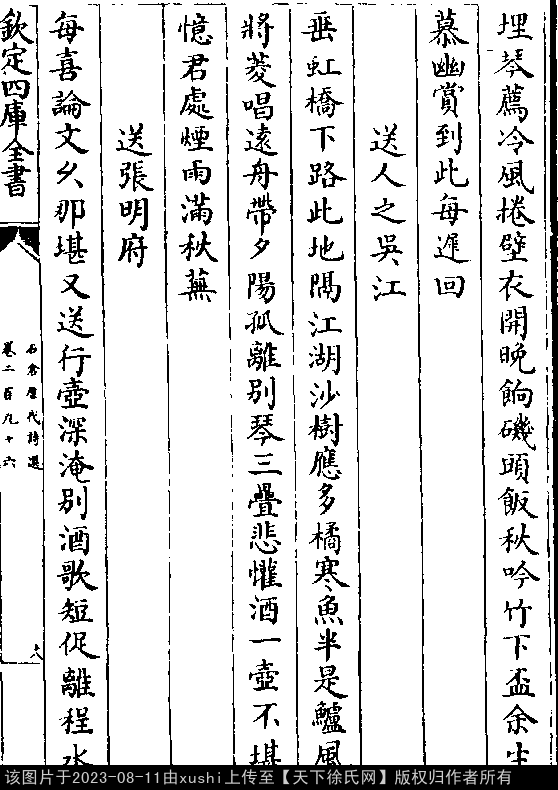 埋琴薦冷風捲壁衣開晚餉磯頭飯秋吟竹下盃余生
慕幽賞到此每遲回
送人之吳江
垂虹橋下路此地隔江湖沙樹應多橘寒魚半是鱸風
將菱唱遠舟帶夕陽孤離別琴三疊悲懽酒一壺不堪
憶君處煙雨滿秋蕪
送張明府
每喜論文久那堪又送行壺深淹別酒歌短促離程水
欽定四庫全書
石倉歷代詩選
卷二百九十六
该图片于2023-08-11由xushi上传至【天下徐氏网】版权归作者所有